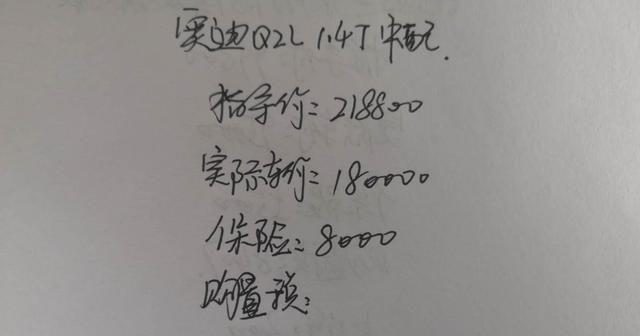 奥迪Q2L 1.4T 中配.
指导价: 218800
实际车价: 180000
保险: 8000
购置税: